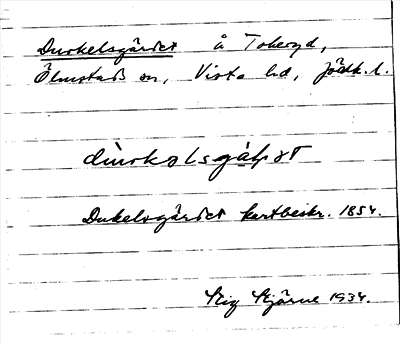 Durkelsgärdet å Tokeryd,
Ölmstads sn, Vista hd, Jödk. l.
dùrkəlsgàʃət
Dukelsgärdet kartbeskr. 1854.
Stig Stjärne 1934.